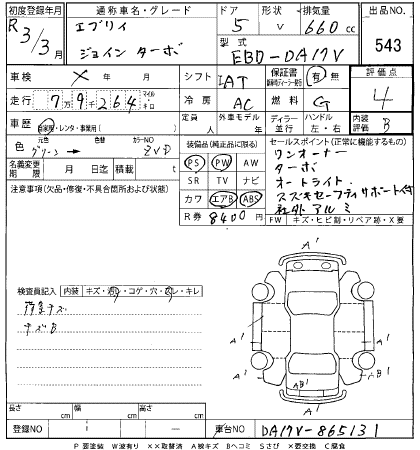 初度登録年月 通称車名・グレード ドア 形状 排気量 出品NO.
R3/3月 エブリイ ジョインターボ 5 V 660cc 543
型式 EBD-DA17V
車検 × 年 月 シフト IAT 保証書 有 無 評価点
走行 7万9千264 マイル キロ 冷房 AC 燃料 G 4
車歴 自家用・レンタ・事業用( ) 定員 人 外車モデル 年 ディーラー 並行 ハンドル 左・右 内装評価 B
色 元色 グリーン 色替 カラーNO ZVD
装備品(純正品に限る) セールスポイント(正常に機能するもの)
名義変更期限 月 日迄 積載 t
PS PW AW
SR TV ナビ
カワ エアB ABS
R券 8400円
ワンオーナー
ターボ
オートライト
スズキセーフティサポート付
社外アルミ
注意事項(欠品・修復・不具合箇所および状態)
FW キズ・ヒビ割・リペア跡・X要
検査員記入 内装 キズ・汚レ・コゲ・穴・スレ・キレ
荷室キズ
キズB
A' A'
A' A'
A' A'
AB1
A'
長さ cm 幅 cm 高さ cm
登録NO 車台NO DA17V-865131
P 要塗装 W波有り ××取替済 A線キズ Bヘコミ Sさび ×要交換 C腐食